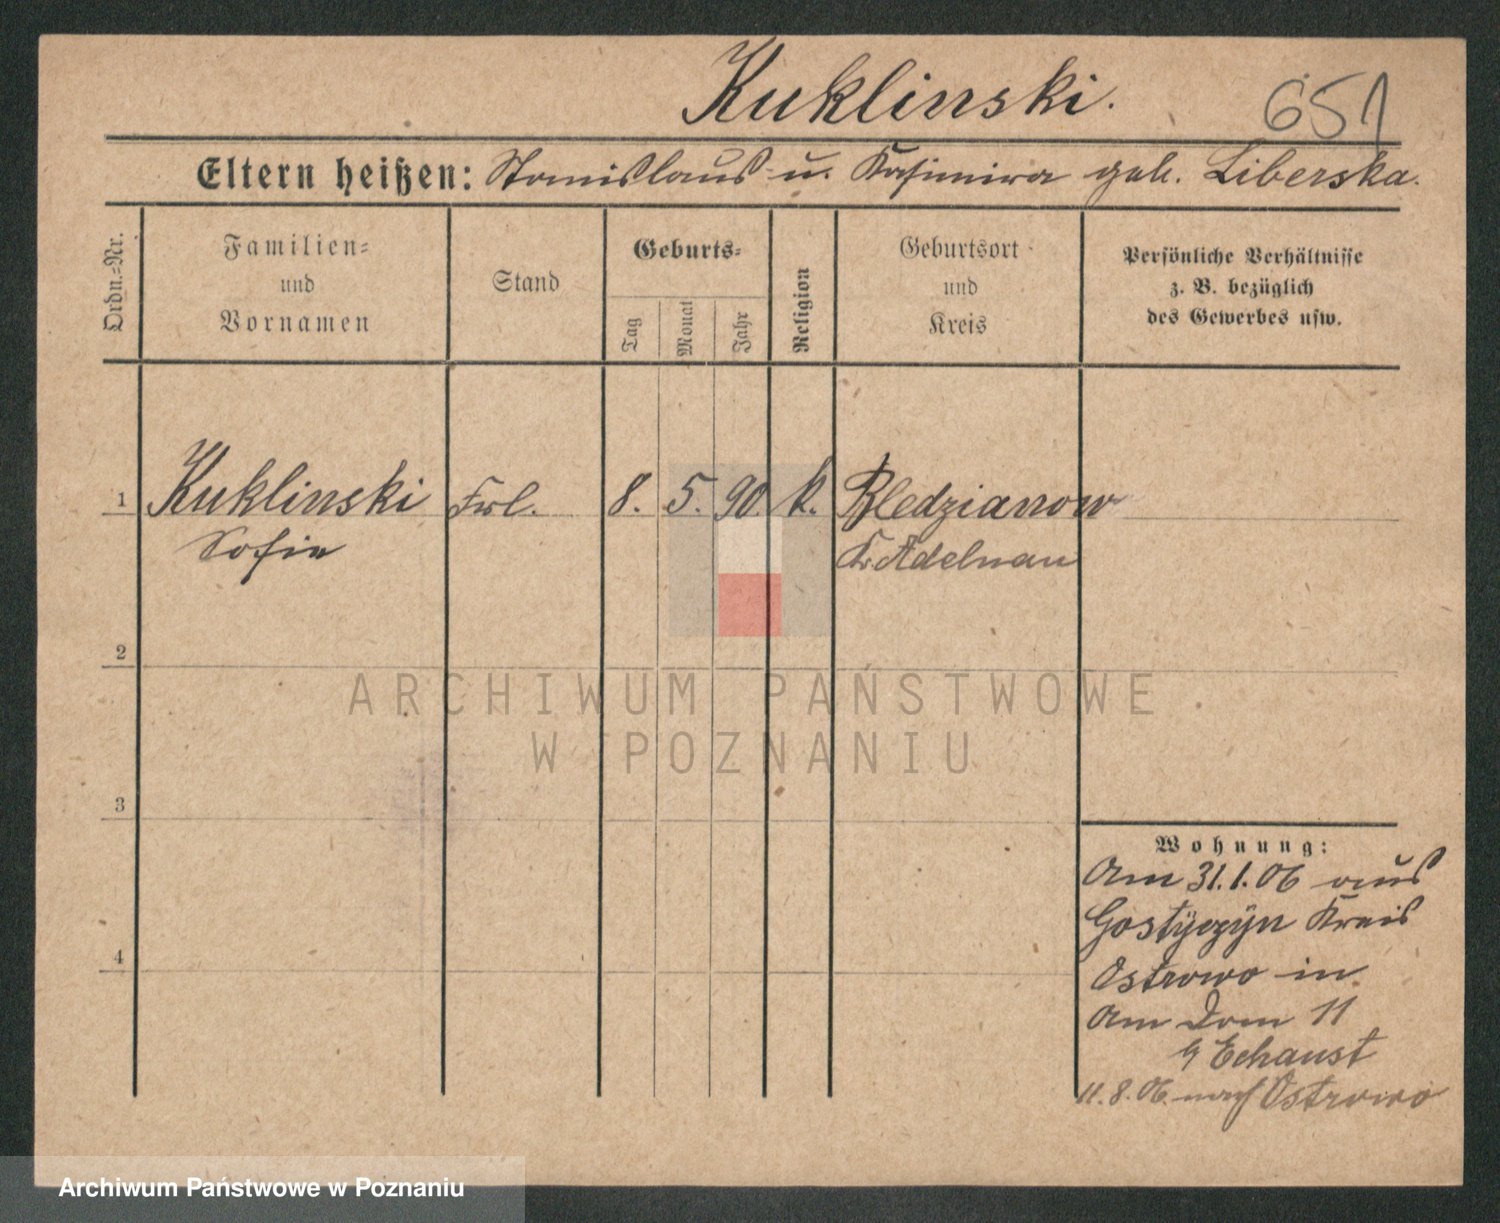 Kuklinski.
651
Eltern heißen: Stanislaus u. Kasimira geb. Liberska.
Ordn.=Nr.
Familien=
und
Vornamen
Stand
Geburts=
Tag
Monat
Jahr
Religion
Geburtsort
und
Kreis
Persönliche Verhältnisse
z. B. bezüglich
des Gewerbes usw.
1 Kuklinski Frl. 8. 5. 90. k. Bledzianow
Sofie Kr. Adelnau
2
ARCHIWUM PAŃSTWOWE
W POZNANIU
3
Wohnung:
Am 31.1.06 aus
Gostyczyn Kreis
4
Ostrowo in
Am Dom 11
Echaust
11.8.06. nach Ostrowo
Archiwum Państwowe w Poznaniu